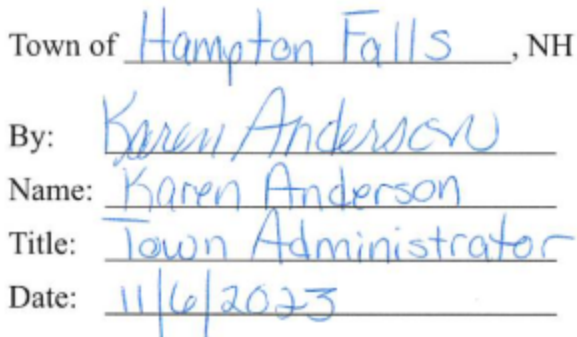 Town of Hampton Falls, NH
By: Karen Anderson
Name: Karen Anderson
Title: Town Administrator
Date: 11/6/2023